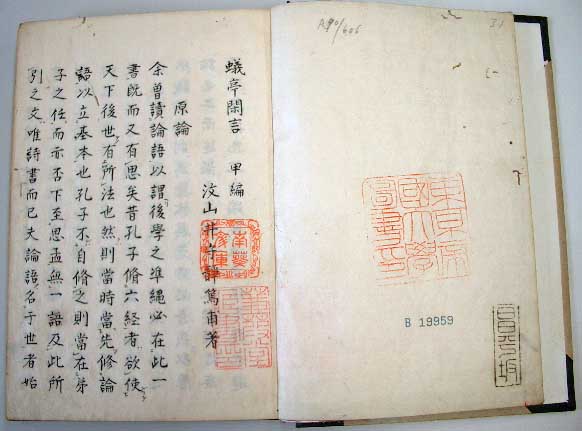 蟻亭閑言 甲編
汶山井
篤甫著
原論
余曾讀論語以謂後學之準繩必在此一
書既而又有思矣昔孔子脩六経者欲使
天下後世有所法也然則當時當先修論
語以立基本也孔子不自脩之則當在弟
子之任而亦否下至思孟無一語及此所
引之文唯詩書而已夫論語名于世者始
東京
國大學
圖書印
B 19959